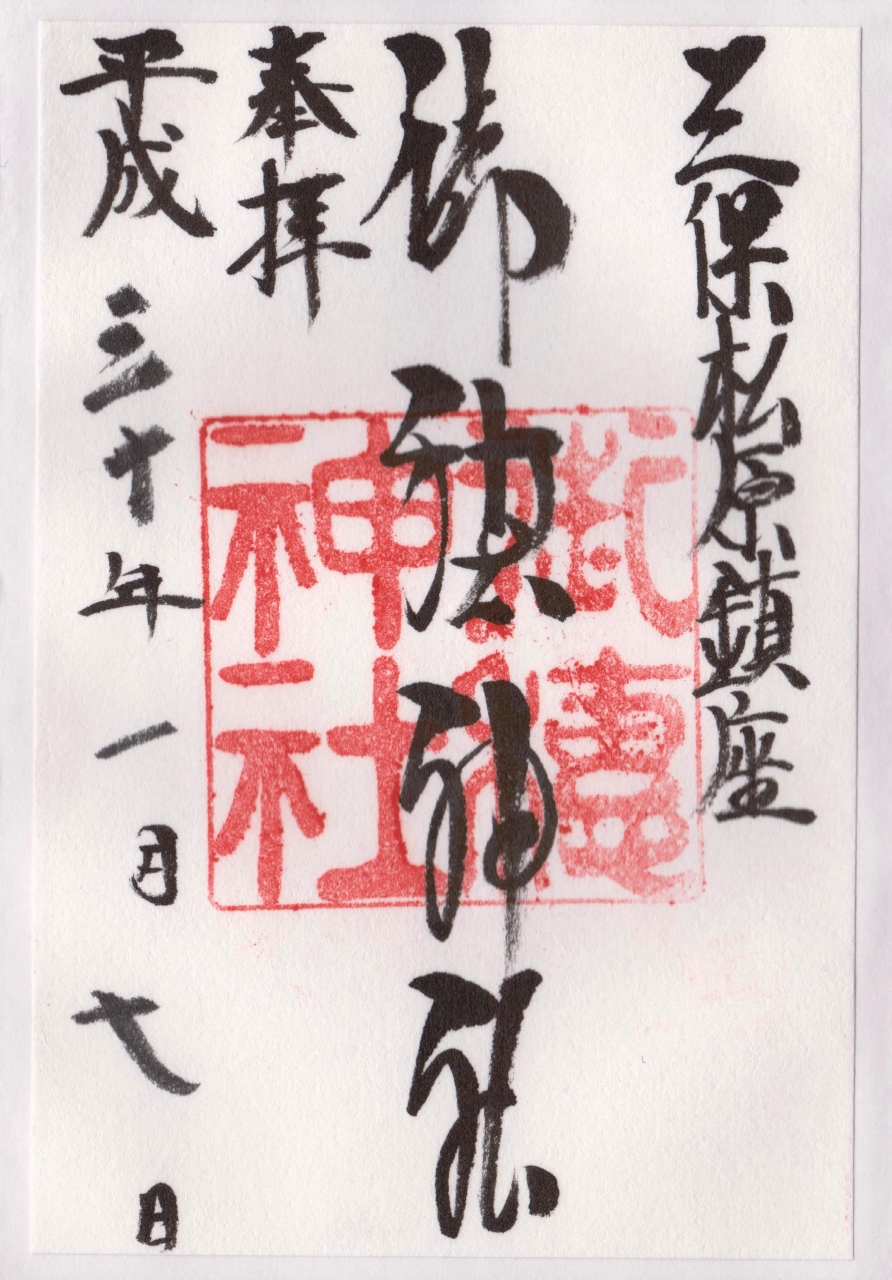 三保松原鎮座
御穂神社
奉拝
平成三十年一月七日
御穗
神社